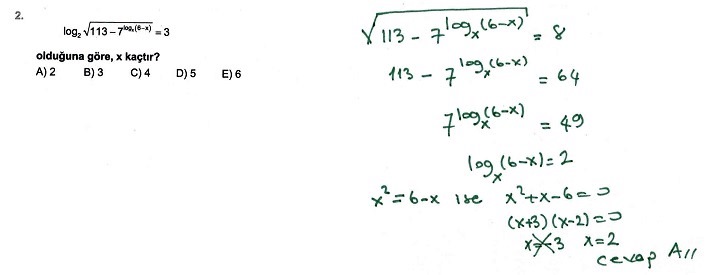 2.
log₂ √(113 – 7^(logₓ(6–x))) = 3
olduğuna göre, x kaçtır?
A) 2 B) 3 C) 4 D) 5 E) 6
√(113 – 7^(logₓ(6–x))) = 8
113 – 7^(logₓ(6–x)) = 64
7^(logₓ(6–x)) = 49
logₓ(6–x) = 2
x² = 6–x ise x²+x–6=0
(x+3)(x–2)=0
x=–3 x=2
cevap A//